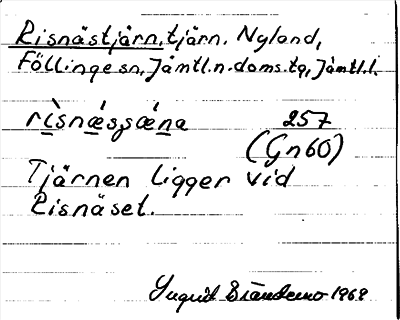 Risnästjärn, tjärn. Nyland,
Föllinge sn, Jämtl.n.doms.tg, Jämtl.l.
rìsnǽsʒǽna 257
(Gn60)
Tjärnen ligger vid
Risnäset.
Ingrid 1969